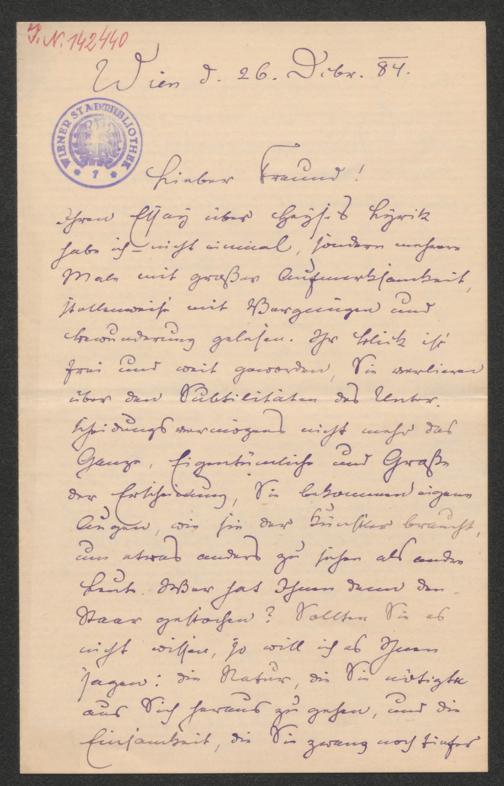 J. N. 142440
Wien d. 26. Dcbr. 84.
WIENER STADTBIBLIOTHEK
Lieber Freund!
Ihren Essay über Heyse's Lyrik
habe ich nicht einmal, sondern mehrere
Male mit großer Aufmerksamkeit,
stellenweise mit Vergnügen und
Bewunderung gelesen. Ihr Blick ist
frei und weit geworden, Sie verlieren
über den Subtilitäten des Unter-
scheidungsvermögens nicht mehr das
Ganze, Eigentümliche und Große
der Erscheinung, Sie bekommen eigene
Augen, wie sie der Künstler braucht,
um etwas anders zu sehen als andre
Leute. Wer hat Ihnen denn den
Staar gestochen? Sollten Sie es
nicht wissen, so will ich es Ihnen
sagen: die Natur, die Sie nötigte
aus Sich heraus zu gehen, und die
Einsamkeit, die Sie zwang noch tiefer